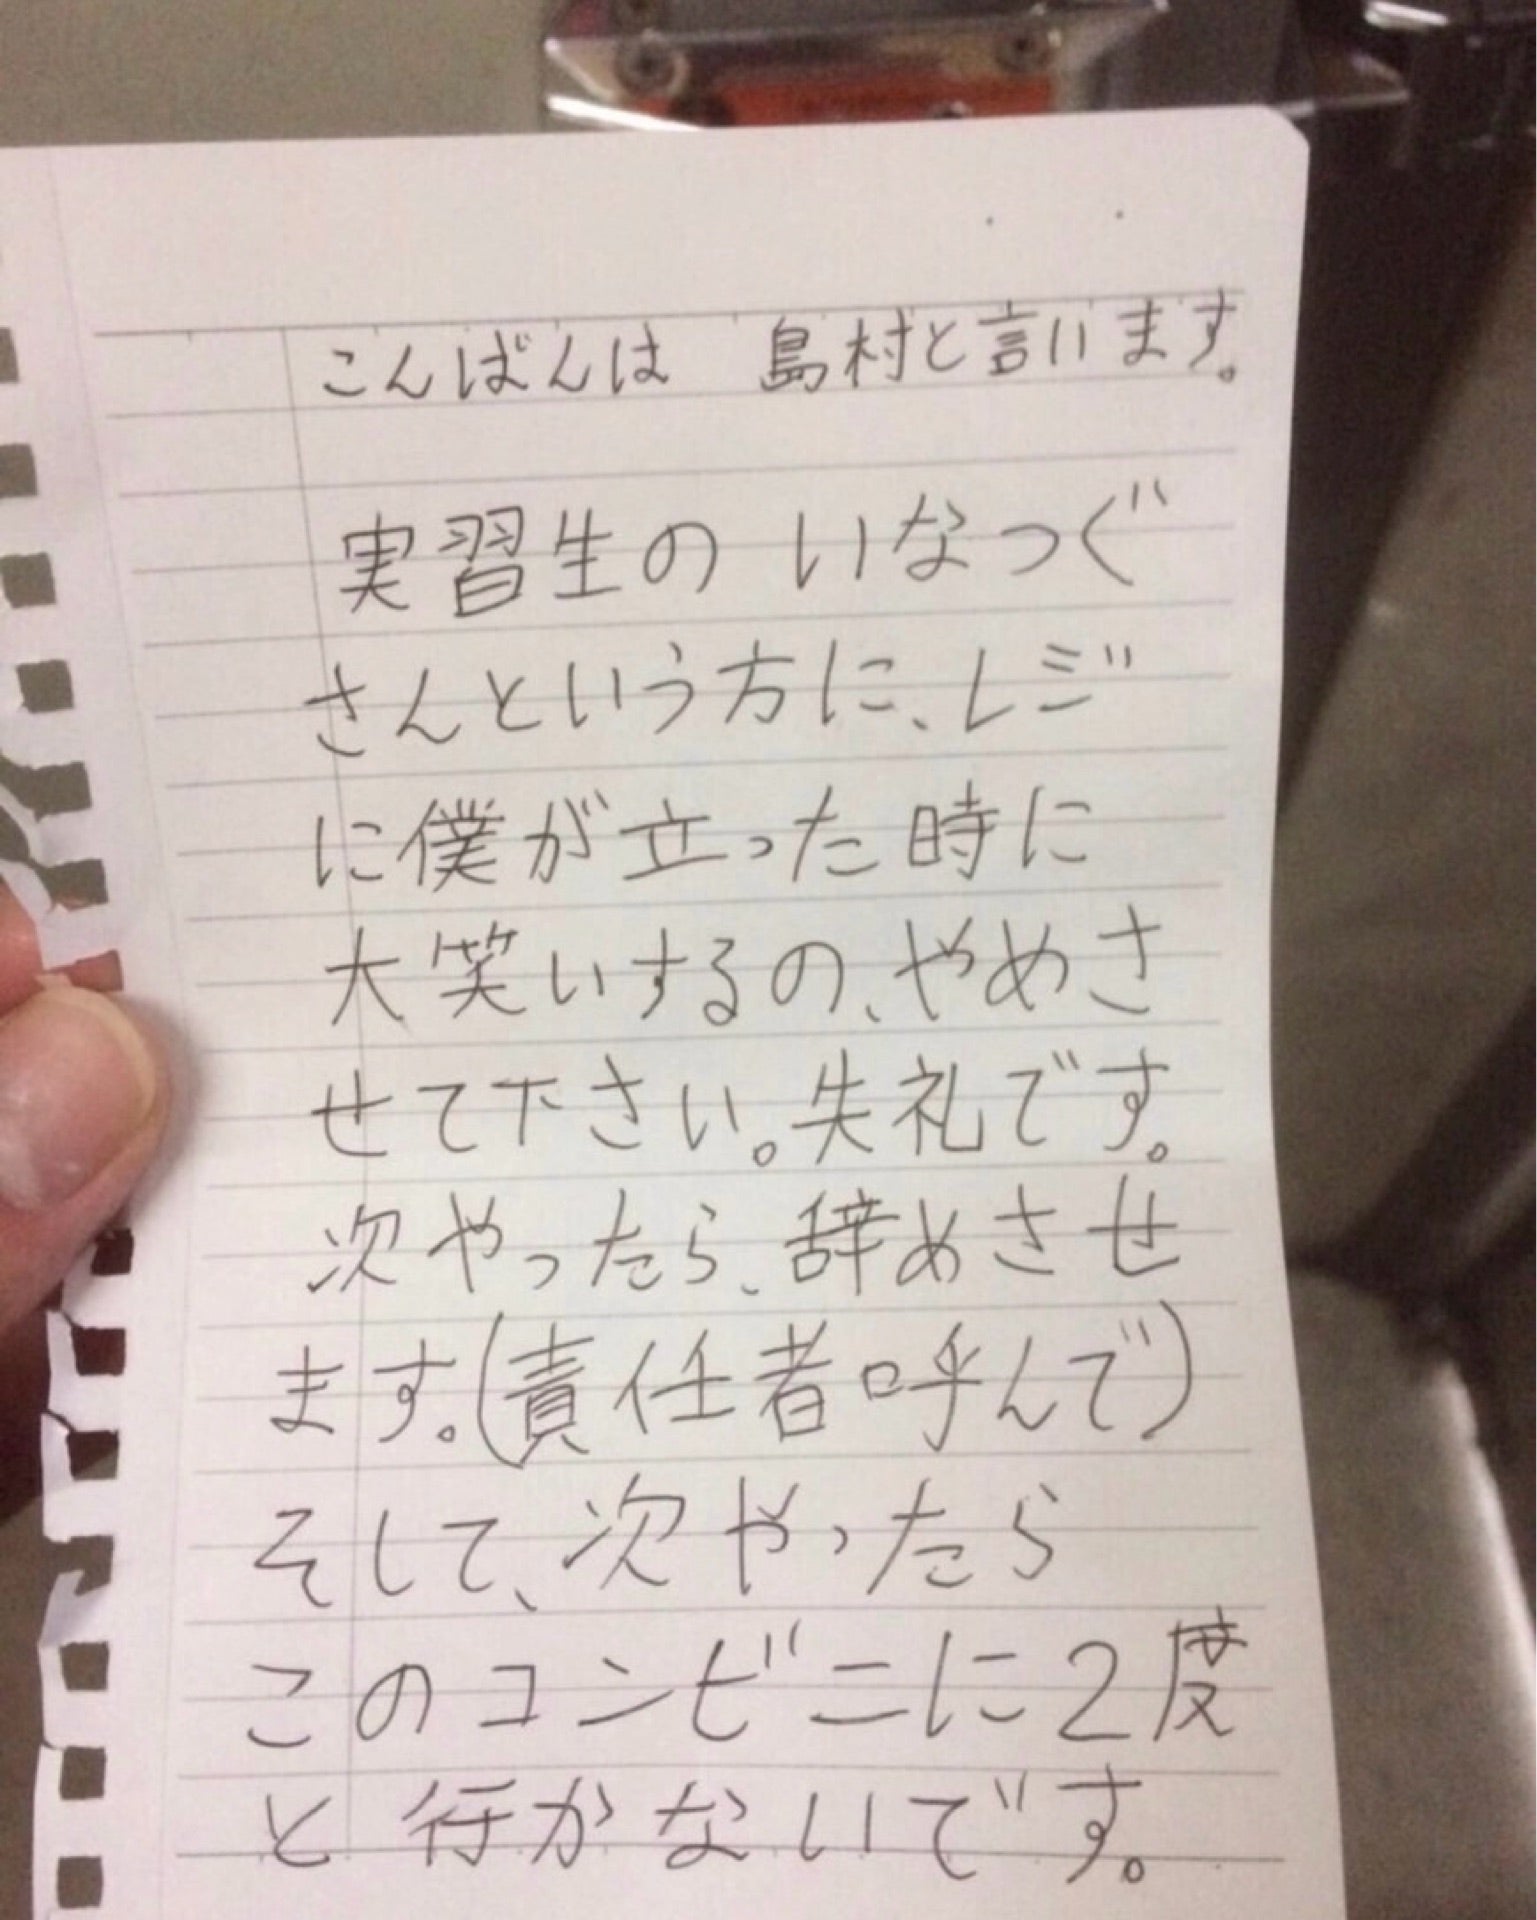 こんばんは 島村と言います。
実習生の いなつぐ
さんという方に、レジ
に僕が立った時に
大笑いするの、やめさ
せて下さい。失礼です。
次やったら、辞めさせ
ます。(責任者呼んで)
そして、次やったら
このコンビニに2度
と行かないです。